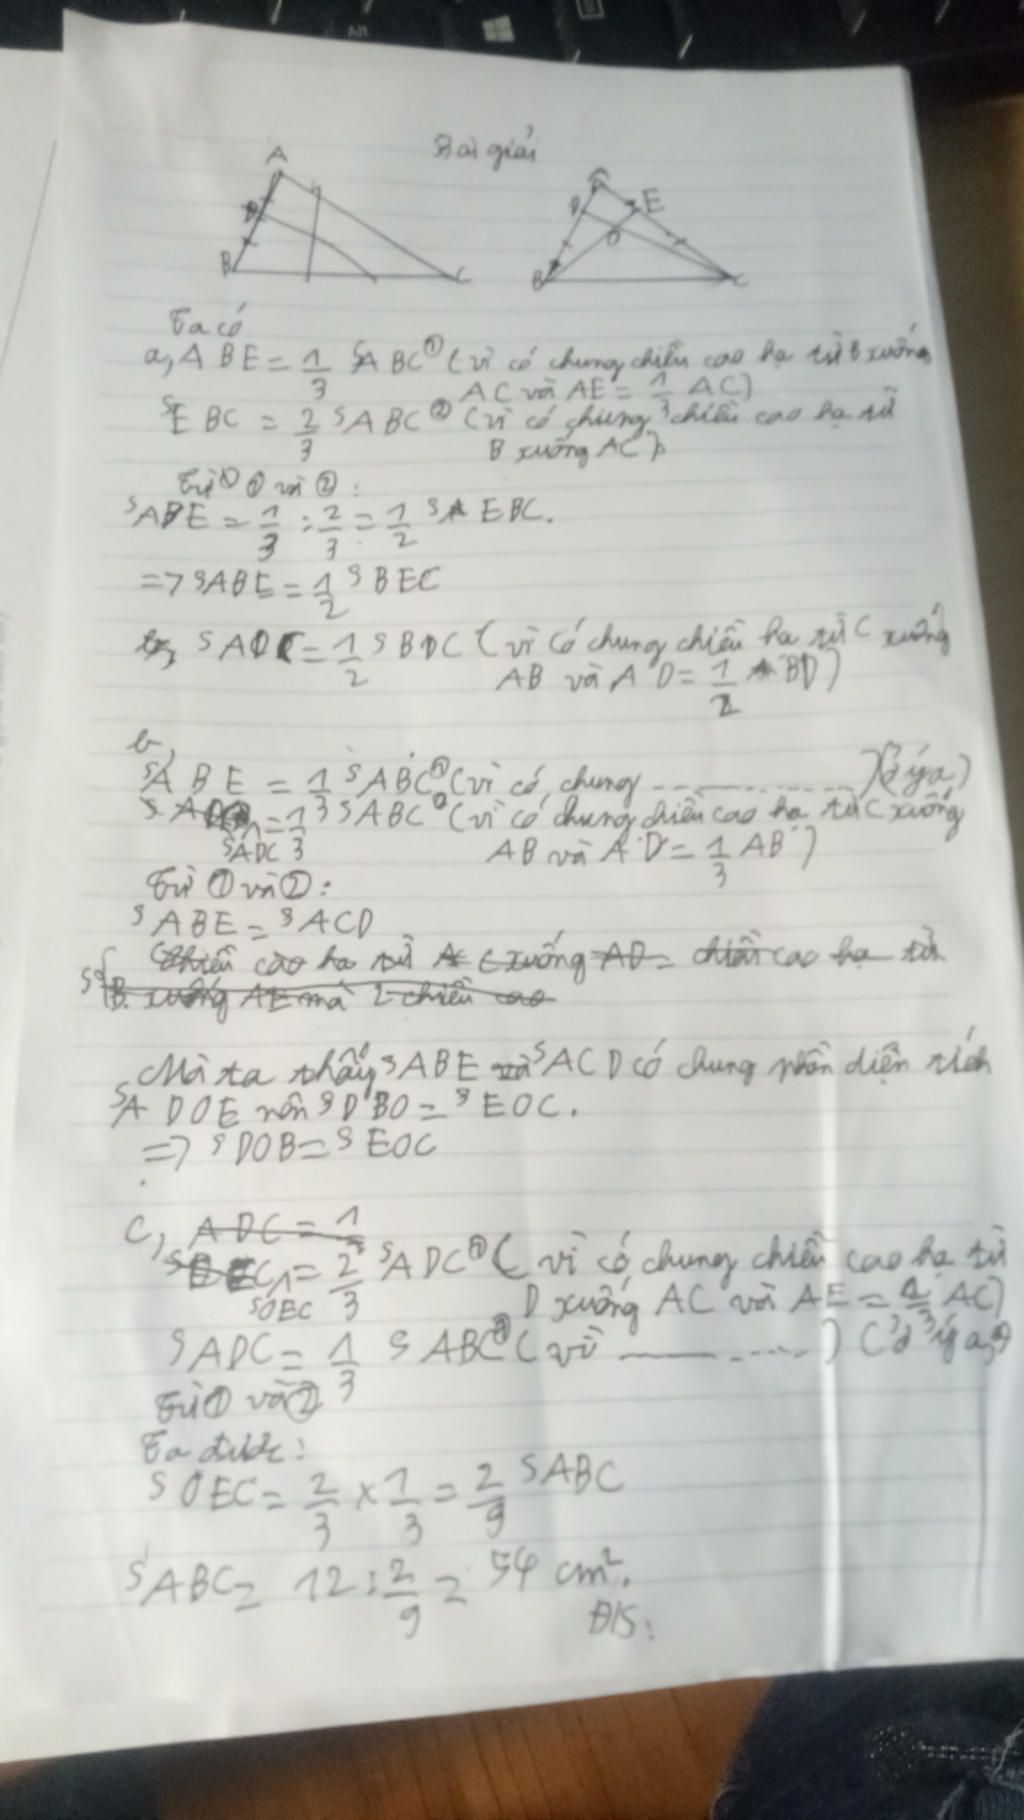 Alt
Bài giải
A
D
B
C
A
D
E
O
B
C
Ta có
a, ABE = 1/3 SABC ① (vì có chung chiều cao hạ từ B xuống
AC và AE = 1/3 AC)
SEBC = 2/3 SABC ② (vì có chung chiều cao hạ từ
B xuống AC)
Từ ① và ②:
SABE = 1/3 : 2/3 = 1/2 S EBC.
=> SABE = 1/2 SBEC
SADC = 1/2 SBDC (vì có chung chiều hạ từ C xuống
AB và AD = 1/2 BD)
b,
SABE = 1/3 SABC ① (vì có chung ..............) (ở ý a)
SADC = 1/3 SABC (vì có chung chiều cao hạ từ C xuống
AB và AD = 1/3 AB)
Từ ① và ②:
SABE = SACD
Chiều cao hạ từ C xuống AD = chiều cao hạ từ
B xuống AE mà 2 chiều cao
Mà ta thấy SABE và SACD có chung phần diện tích
SADOE nên SDBO = SEOC.
=> SDOB = SEOC
c, ADC = 1
SOEC = 2/3 SADC ① (vì có chung chiều cao hạ từ
D xuống AC và AE = 1/3 AC)
SADC = 1/3 SABC ② (vì ..............) (ở ý a)
Từ ① và ②
Ta được:
SOEC = 2/3 x 1/3 = 2/9 SABC
SABC = 12 : 2/9 = 54 cm².
Đ/S: